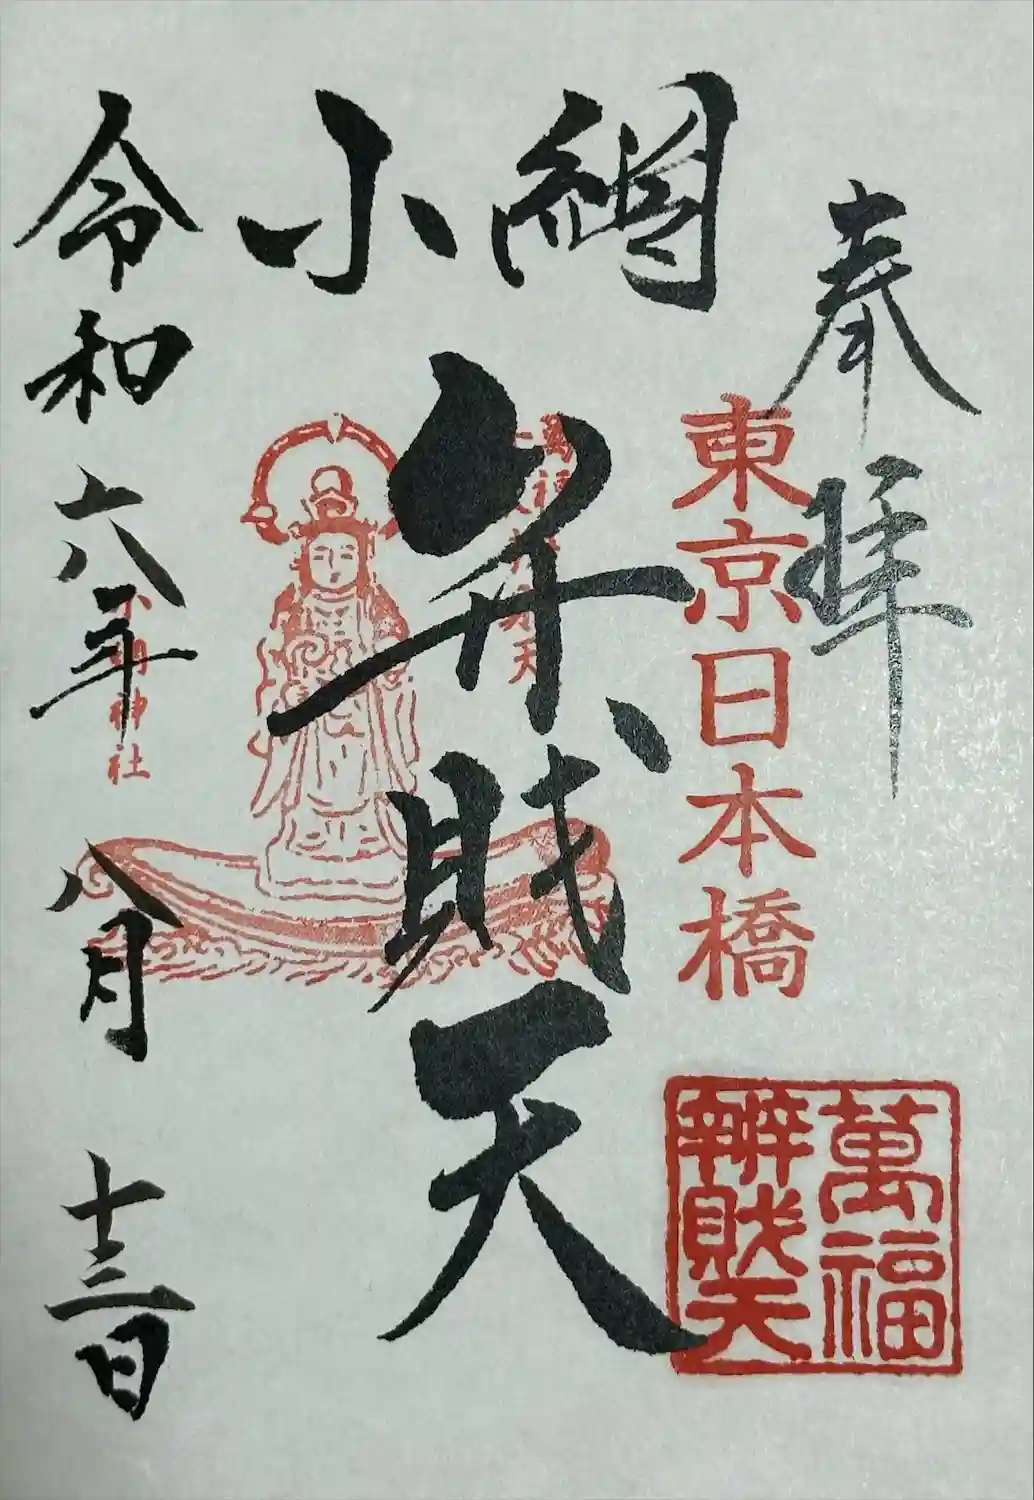 奉拝
東京日本橋
萬福
辨財天
小網
弁財天
令和六年八月十三日
神社